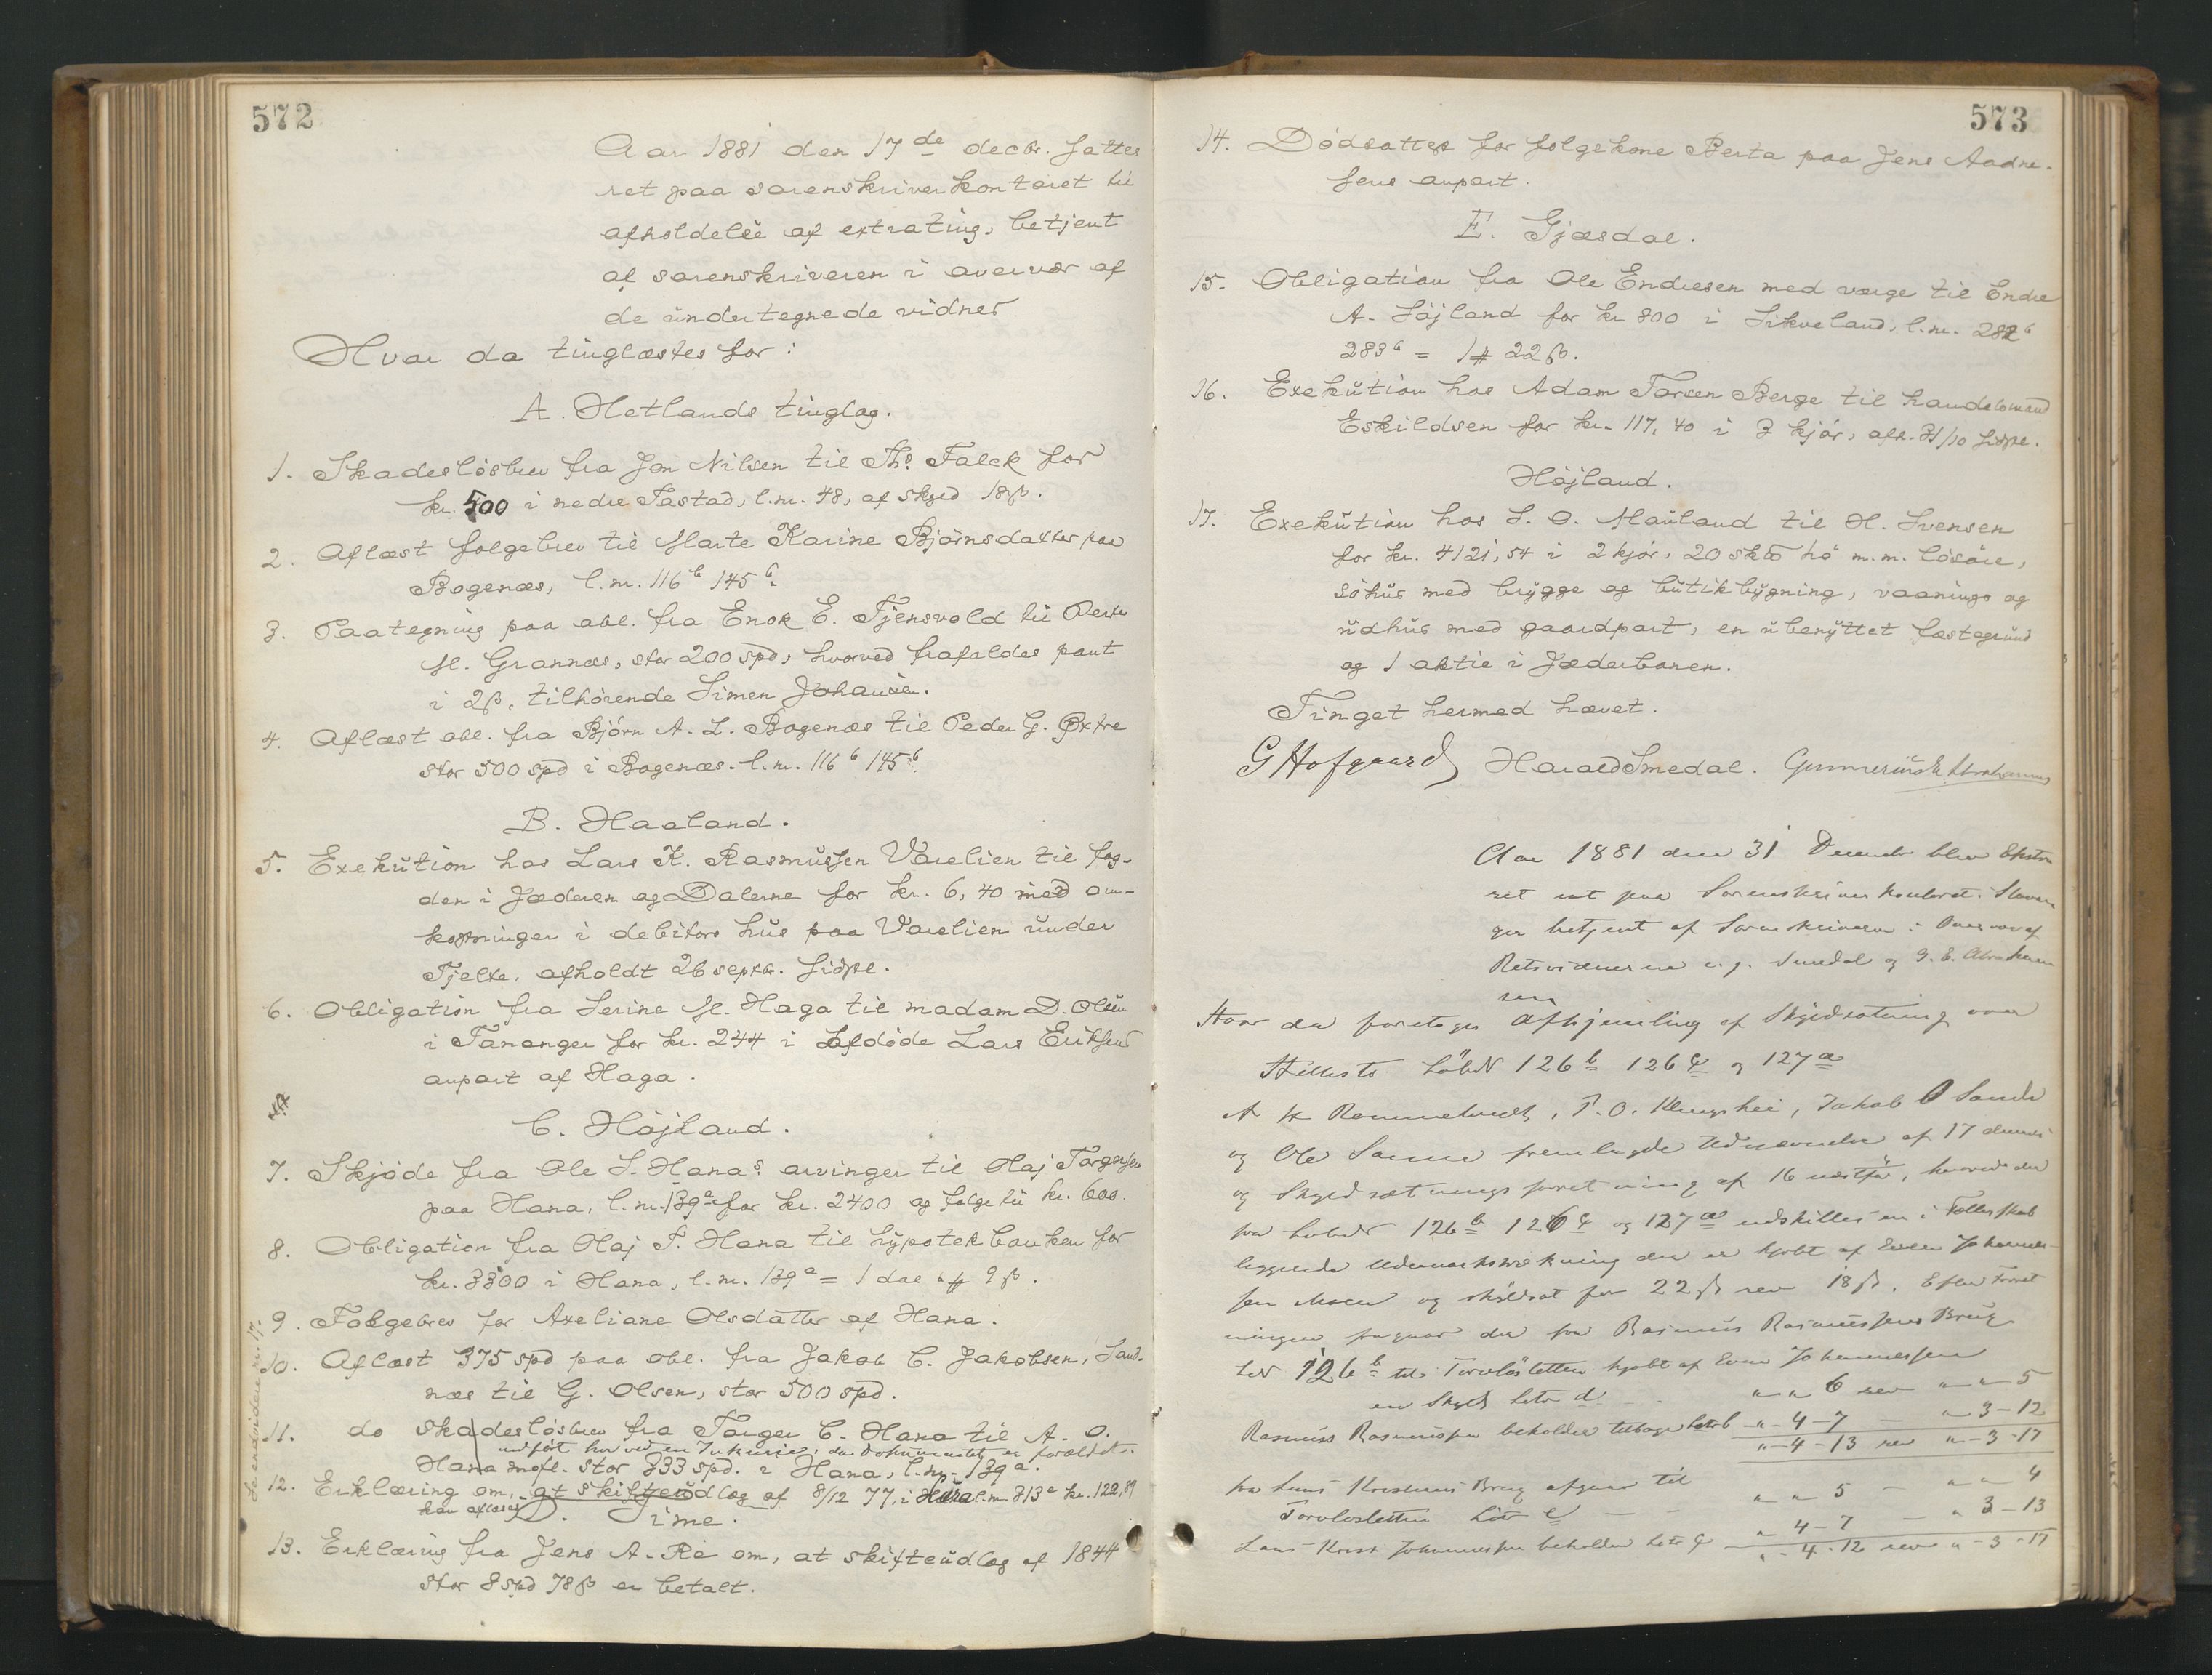 572
Aar 1881 den 17de decbr. sattes
ret paa sorenskriverkontoret til
afholdelse af extrating, betjent
af sorenskriveren i overvær af
de undertegnede vidner
Hvor da tinglæstes for:
A. Hetlands tinglag.
1. Skadesløsbrev fra Jon Nilsen til Ths. Falck for
kr. 500 i nedre Tastad, l.nr. 48, af skyld 18 β.
2. Aflæst folgebrev til Marte Karine Bjørnsdatter paa
Bogenæs, l.nr. 116 b 145 b.
3. Paategning paa obl. fra Enok E. Tjensvold til
M. Grannæs, stor 200 spd, hvorved frafaldes pant
i 2 β, tilhørende Simen Johansen.
4. Aflæst obl. fra Bjørn A. L. Bogenæs til Peder G. Østre
stor 500 spd i Bogenæs. l.nr. 116 b 145 b.
B. Haaland.
5. Exekution hos Lars K. Rasmussen Varelien til fog-
den i Jæderen og Dalerne for kr. 6,40 med om-
kostninger i debitors hus paa Varelien under
Tjelte, afholdt 26 septbr. sidstl.
6. Obligation fra Serine M. Haga til madam D. Olsen
i Tananger for kr. 244 i afdøde Lars Eriksens
anpart af Haga.
C. Højland.
7. Skjøde fra Ole S. Hanas arvinger til Olaj Torgersen
paa Hana, l.nr. 139 a for kr. 2400 og folge til kr. 600.
8. Obligation fra Olaj T. Hana til hypotekbanken for
kr. 3300 i Hana, l.nr. 139 a = 1 dal 9 β.
9. Folgebrev for Axeliane Olsdatter af Hana.
10. Aflæst 375 spd paa obl. fra Jakob C. Jakobsen, Sand-
næs til G. Olsen, stor 500 spd.
11. do skadesløsbrev fra Torger C. Hana til A. O.
indført her ved en Inkurie, da Dokumentet er forældet.
Hana mfl. stor 333 spd. i Hana, l.nr. 139 a.
12. Erklæring om, at skifteudlæg af 8/12 77, i l.nr. 313 a kr. 122,89
kan aflæses
D. Time.
13. Erklæring fra Jens A. Re om, at skifteudlæg af 1844
stor 8 spd 78 β er betalt.
573
14. Dødsattest for folgekone Berta paa Jens Aadne-
sens anpart.
E. Gjæsdal.
15. Obligation fra Ole Endresen med værge til Endre
A. Højland for kr 800 i Sikveland, l.nr. 282 b
283 b = 1 # 22 β.
16. Exekution hos Adam Torsen Berge til handelsmand
Eskildsen for kr. 117,40 i 3 kjør, afh. 31/10 sidstl.
Højland.
17. Exekution hos S. O. Mauland til H. Svensen
for kr. 4121,54 i 2 kjør, 20 sktø hø m.m. løsøre,
søhus med brygge og butikbygning, vaanings og
udhus med gaardpart, en ubenyttet fæstegrund
og 1 aktie i Jæderbanen.
Tinget hermed hævet.
G Hofgaard Harald Smedal. Abrahamsen
Aar 1881 den 31 Decembr blev Ekstra
ret sat paa Sorenskriverkontoret i Stavan
ger betjent af Sorenskriveren i Overvær af
Retsvidnerne Smedal og G. E. Abraham
sen
Hvor da foretoges Afhjemling af Skyldsætning over
Løbe N 126 b 126 c og 127 a
A H Rommetvedt, T. O. Klungshei, Jakob O Sande
og Ole fremlagde Udnævnelse af 17
og Skyldsætningsforretning af 16 hvorved der
fra Lobe N 126 b 126 c og 127 a udskilles en i Fællesskab
liggende Udmarkstrækning der er kjøbt af Even Johannes-
sen Moen og skyldsat for 22 β rev 18 β. Efter Forret
ningen fragaar der fra Rasmus Rasmussens Brug
LN 126 b til Torvløsletten kjøbt af Even Johannessen
en Skyld Litr d " " 6 rev " " 5
Rasmus Rasmussen beholder tilbage Litr b " - 4 - 7 — " 3 - 12
" - 4 - 13 rev " - 3 - 17
fra Lars Kristians Brug afgaar til
Torvløsletten Litr e — — " " 5 — " " 4
Lars Krist Johannessen beholder Litr c " 4 - 7 — " 3 - 13
" - 4 - 12 rev " - 3 - 17